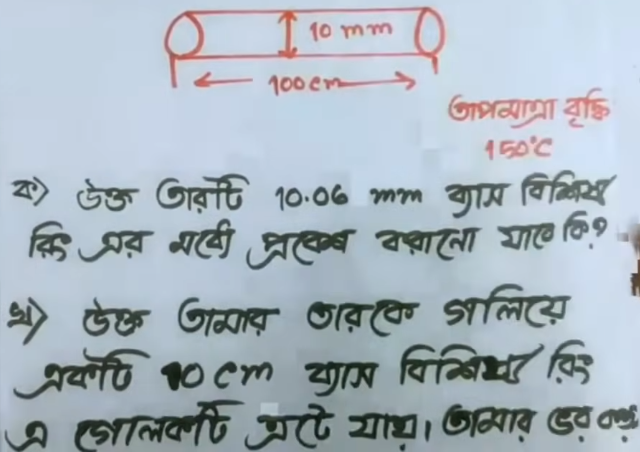 10 mm
100cm
তাপমাত্রা বৃদ্ধি
150°C
ক) উক্ত তারটি 10.06 mm ব্যাস বিশিষ্ট
রিং এর মধ্যে প্রবেশ করানো যাবে কি?
খ) উক্ত তামার তারকে গলিয়ে
একটি 10 cm ব্যাস বিশিষ্ট রিং
এ গোলকটি এটে যায়। তামার ভর কত